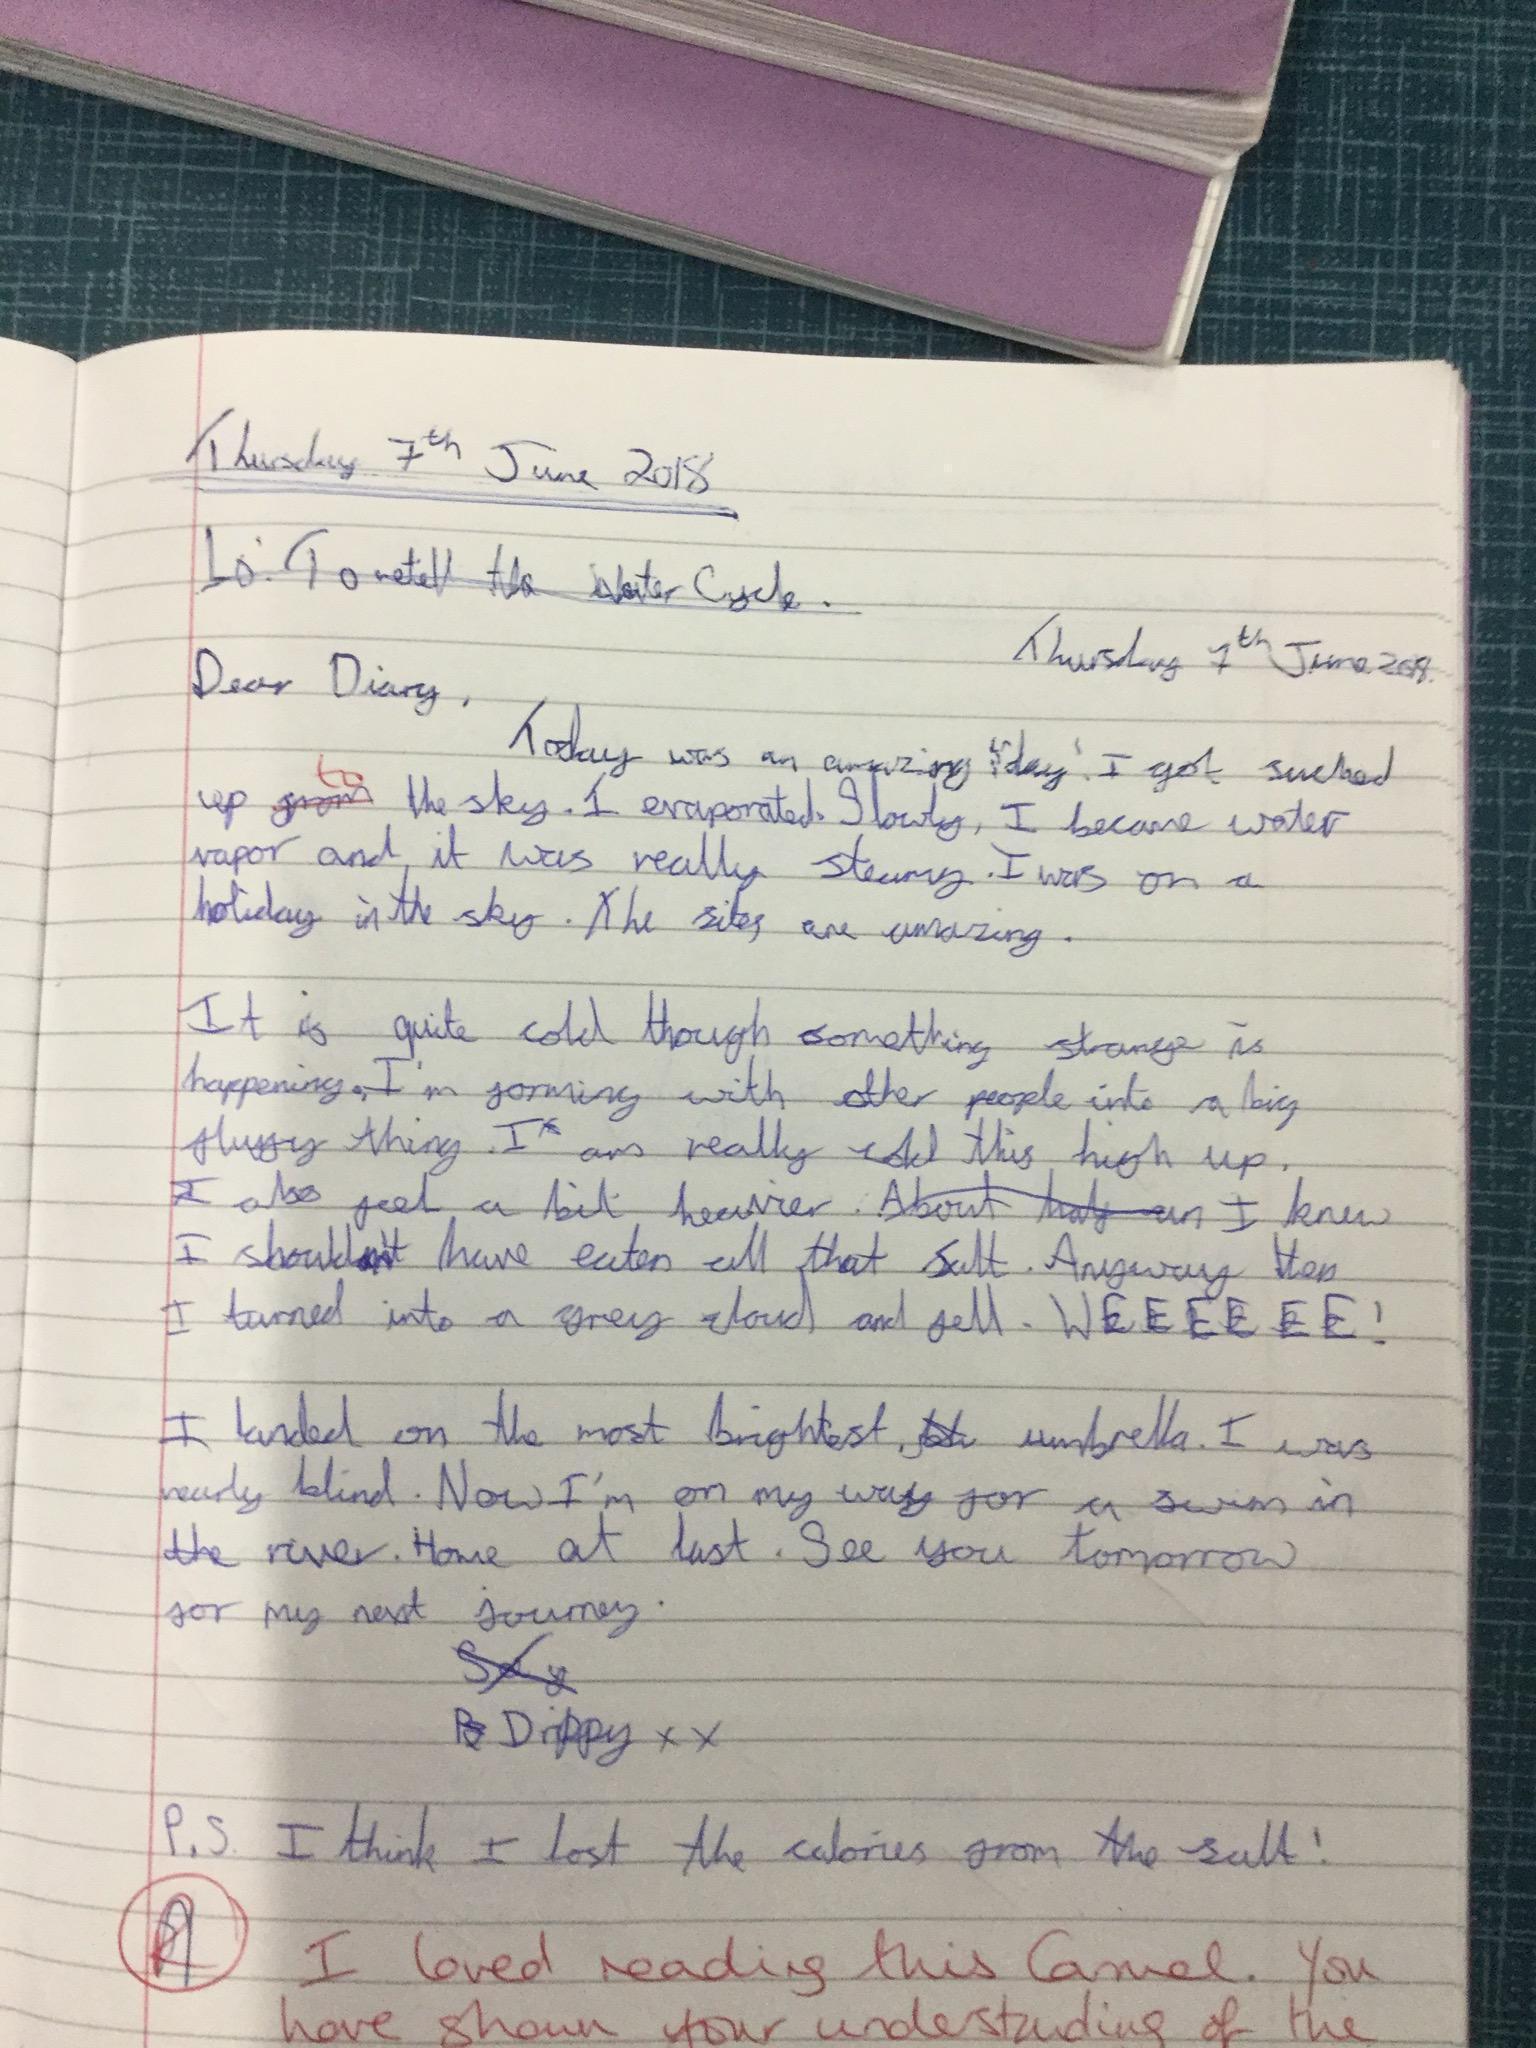 Thursday 7th June 2018
Lo: To retell the Water Cycle.
Thursday 7th June 2018.
Dear Diary,
Today was an amazing "day". I got sucked
to
up from the sky. I evaporated. Slowly, I became water
vapor and it was really steamy. I was on a
holiday in the sky. The sites are amazing.
It is quite cold though something strange is
happening. I'm forming with other people into a big
fluffy thing. I am really cold this high up.
I also feel a bit heavier. About that un I knew
I shouldn't have eaten all that salt. Anyway then
I turned into a grey cloud and fell. WEEEEEE!
I landed on the most brightest, umbrella. I was
nearly blind. Now I'm on my way for a swim in
the river. Home at last. See you tomorrow
for my next journey.
Drippy x x
P.S. I think I lost the calories from the salt!
A I loved reading this Carmel. You
have shown your understanding of the